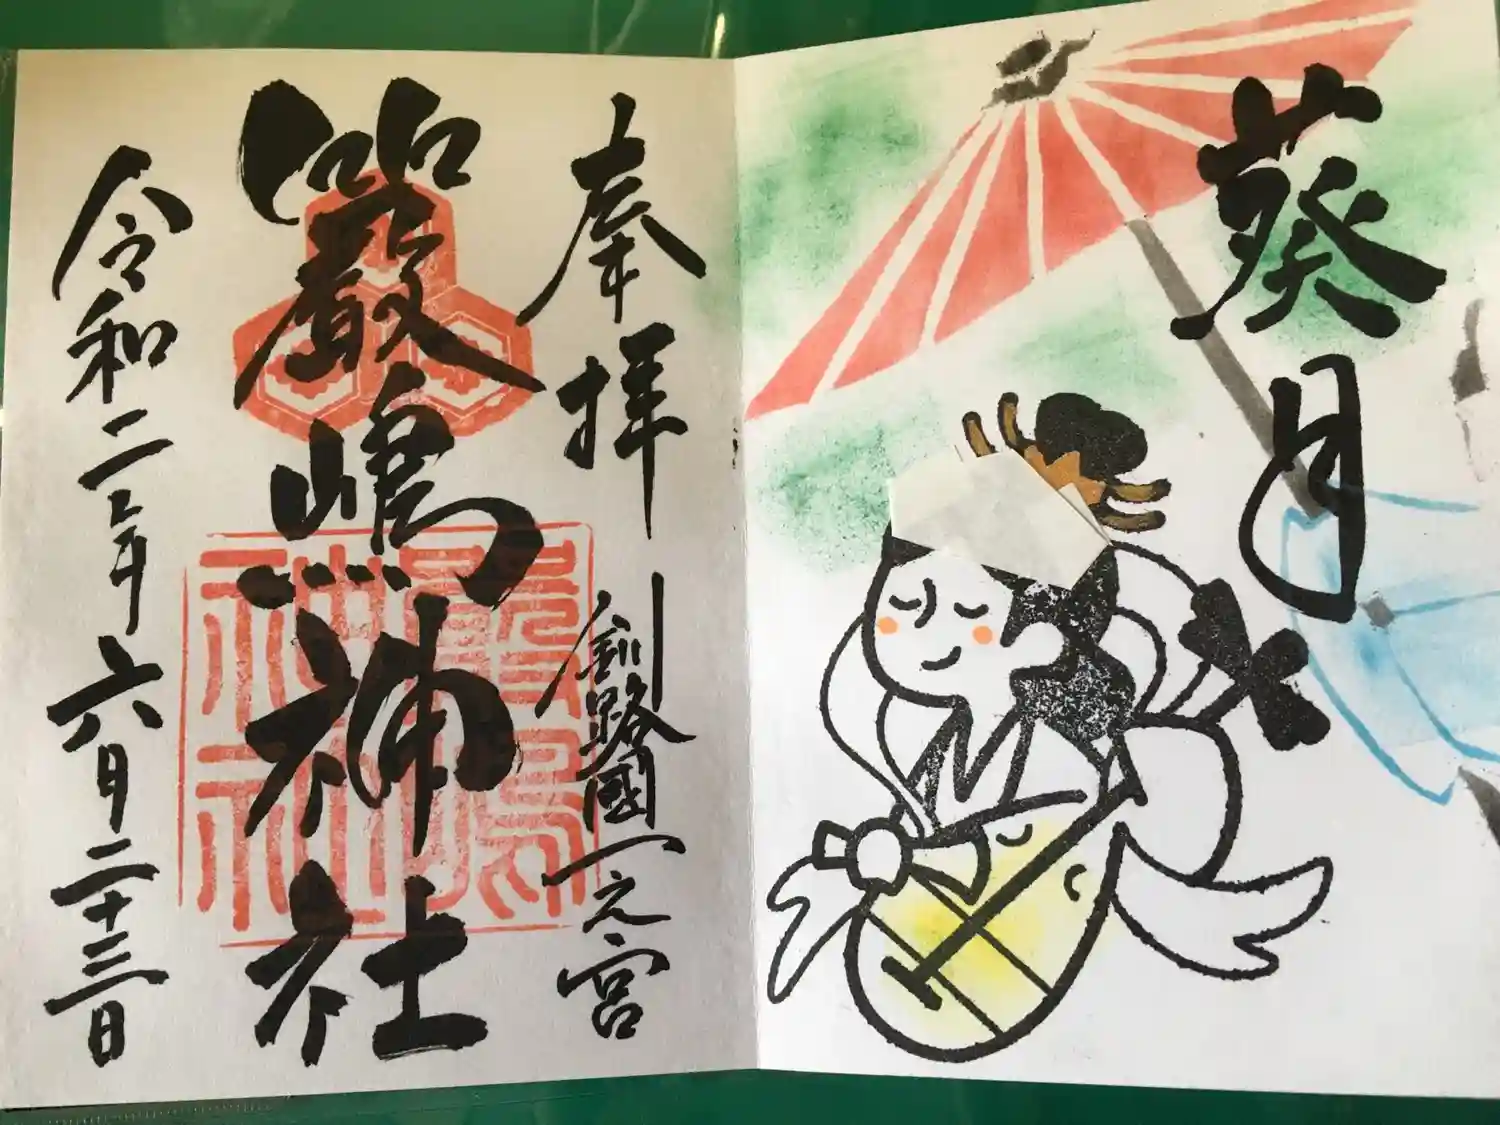 葵月
奉拝
釧路國一之宮
嚴嶋神社
令和二年六月二十三日